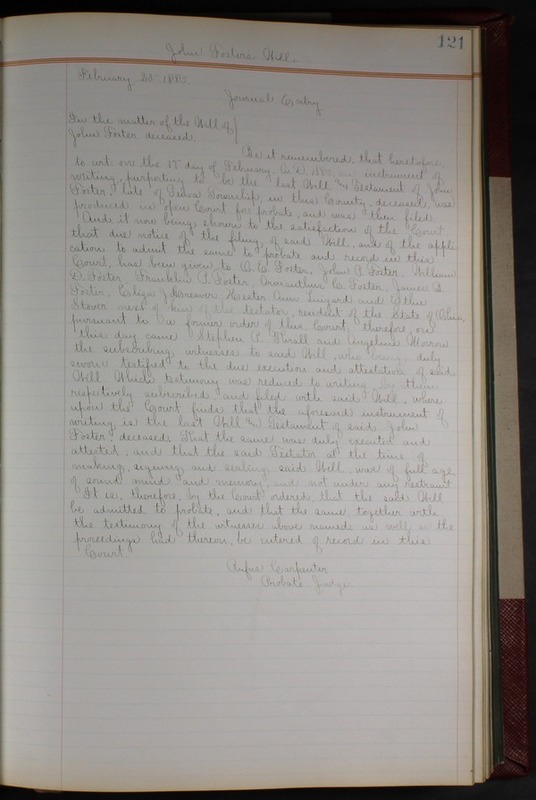 121
John Foster's Will.
February
Journal Entry
In the matter of the Will of
John Foster deceased.
Be it remembered, that heretofore,
to wit: on the 17" day of February, A.D. an instrument of
writing, purporting to be the last Will and Testament of John
Foster, late of Township, in this County, deceased, was
produced in open Court for probate, and was then filed.
And it now being shown to the satisfaction of the Court
that due notice of the filing of said Will, and of the appli
cation to admit the same to probate and record in this
Court, has been given to O. C. Foster, John P. Foster, William
D. Foster, Franklin P. Foster, C. Foster, James B.
Foster, Hester Ann and
Stover next of kin of the testator, resident of the State of Ohio,
pursuant to a former order of this Court, therefore, on
this day came Stephen P. and Angeline Morrow
the subscribing witnesses to said Will, who being duly
sworn testified to the due execution and attestation of said
Will. Which testimony was reduced to writing, by them
respectively subscribed and filed with said Will, where
upon the Court finds that the aforesaid instrument of
writing is the last Will and Testament of said John
Foster deceased. That the same was duly executed and
attested, and that the said Testator at the time of
making, signing and sealing said Will, was of full age
of sound mind and memory and not under any restraint
It is, therefore, by the Court ordered that the said Will
be admitted to probate, and that the same together with
the testimony of the witnesses above named as well as the
proceedings had thereon, be entered of record in this
Court.
Rufus Carpenter
Probate Judge